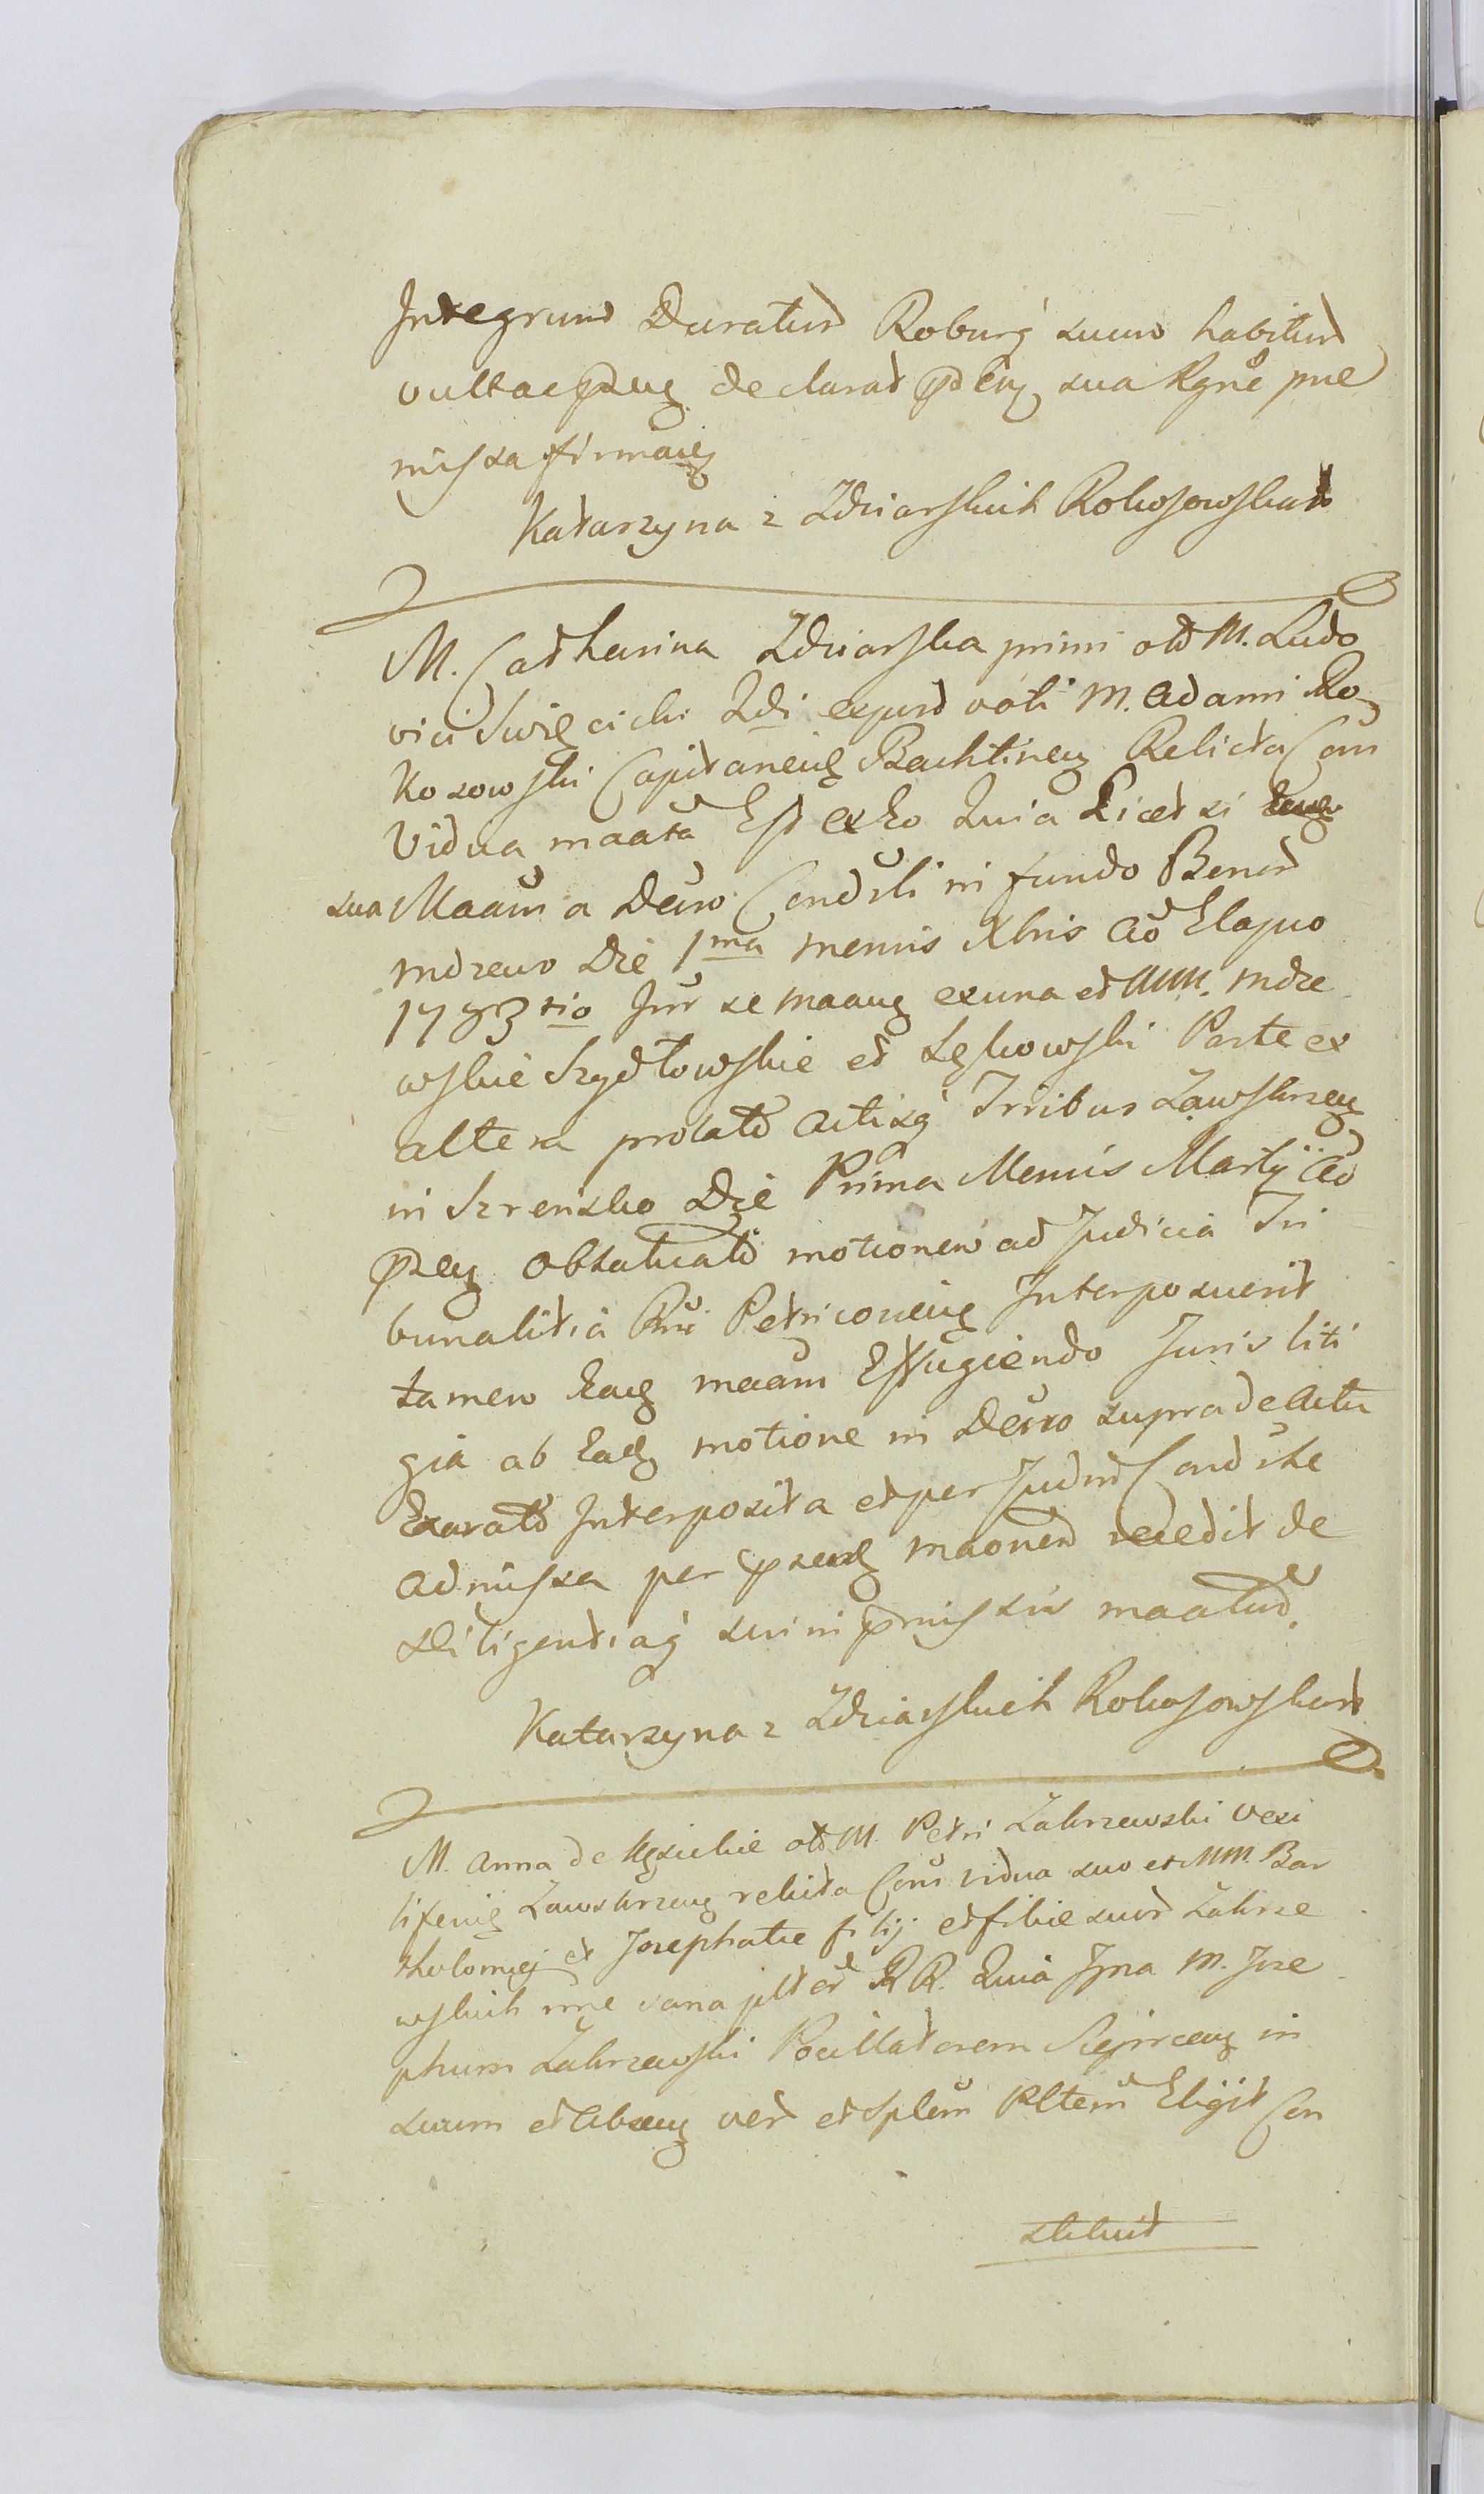 Integrum Duratur Roburq suum habitur
vultaeqseuz declarat pdcuz sua Rgnē pne
missa firmaiez
Katarzyna z Zdziarskich Rokosowska
M. Catharina Zdziarska primi otd M. Ludo
vici Swięcicki 2di expost vōti M. Adami Ro
kosowski Capitaneiez Bachtineuz Relicta Con
Vidua maata Est ex Eo Quia Licet si
sua Maaūm a Dēcro Condsli in fundo Benor
mdzewo Die 1ma mensis Xbris Aō Elapso
1783tio Inr se maauz exuna et MM. mdze
wskie Szydłowskie et Lęskowski Parte ex
altera prolatō Actisq Trribus Zawskrzeuz
in Szrensko Die Prima Mensis Martij Aō
pseuz oblatuatō motionem ad Judicia Tri
bunalitia Rni Petricoueiez Interposuerit
tamen Eauz maam Effugiendo Juris liti
gia ab Eadz motione in Dēcro supradeactu
Exaratō Interposita et per Judm Condsle
admissa per pseuz maonem recedit de
diligentiaq sui in pmissis maatur.
Katarzyna z Zdziarskich Rokosowska
M. Anna de Kęsickie otd M. Petri Zakrzewski Vexi
liferiez Zawskrzeuz relicta Cons vidua suo et MM. Bar
tholomej et Josephatae filij et filie suor Zakrze
wskich nne sana pltēr RR. Quia Ipsa M. Jose
phum Zakrzewski Pocillatorem Sieprceuz in
suum et Absenz ver et Splem Pltem Eligit Con
stituit